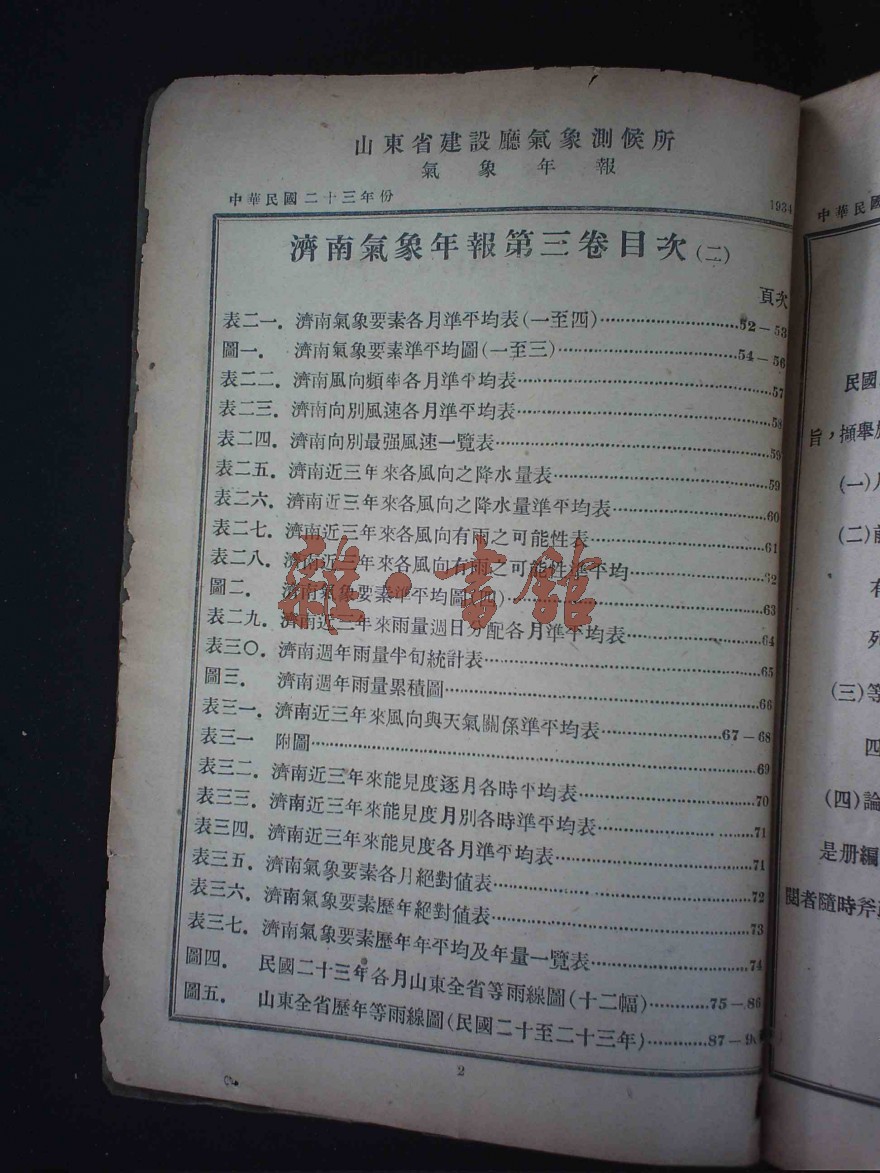 山東省建設廳氣象測候所
氣象年報
中華民國二十三年份 1934
濟南氣象年報第三卷目次(二)
頁次
表二一. 濟南氣象要素各月準平均表(一至四)……52—53
圖一. 濟南氣象要素準平均圖(一至三)……54—56
表二二. 濟南風向頻率各月準平均表……57
表二三. 濟南向別風速各月準平均表……58
表二四. 濟南向別最强風速一覽表……59
表二五. 濟南近三年來各風向之降水量表……59
表二六. 濟南近三年來各風向之降水量準平均表……60
表二七. 濟南近三年來各風向有雨之可能性表……61
表二八. 濟南近三年來各風向有雨之可能性準平均……62
圖二. 濟南氣象要素準平均圖(四)……63
表二九. 濟南近三年來雨量週日分配各月準平均表……64
表三〇. 濟南週年雨量半旬統計表……65
圖三. 濟南週年雨量累積圖……66
表三一. 濟南近三年來風向與天氣關係準平均表……67—68
表三一 附圖……69
表三二. 濟南近三年來能見度逐月各時平均表……70
表三三. 濟南近三年來能見度月別各時準平均表……71
表三四. 濟南近三年來能見度各月準平均表……71
表三五. 濟南氣象要素各月絕對値表……72
表三六. 濟南氣象要素歷年絕對値表……73
表三七. 濟南氣象要素歷年年平均及年量一覽表……74
圖四. 民國二十三年各月山東全省等雨線圖(十二幅)……75—86
圖五. 山東全省歷年等雨線圖(民國二十至二十三年)……87—9
2
雜·書館
中華民國
民國
旨，擷舉
(一)
(二)前
有
死
(三)等
四
(四)論
是册編
閱者隨時斧